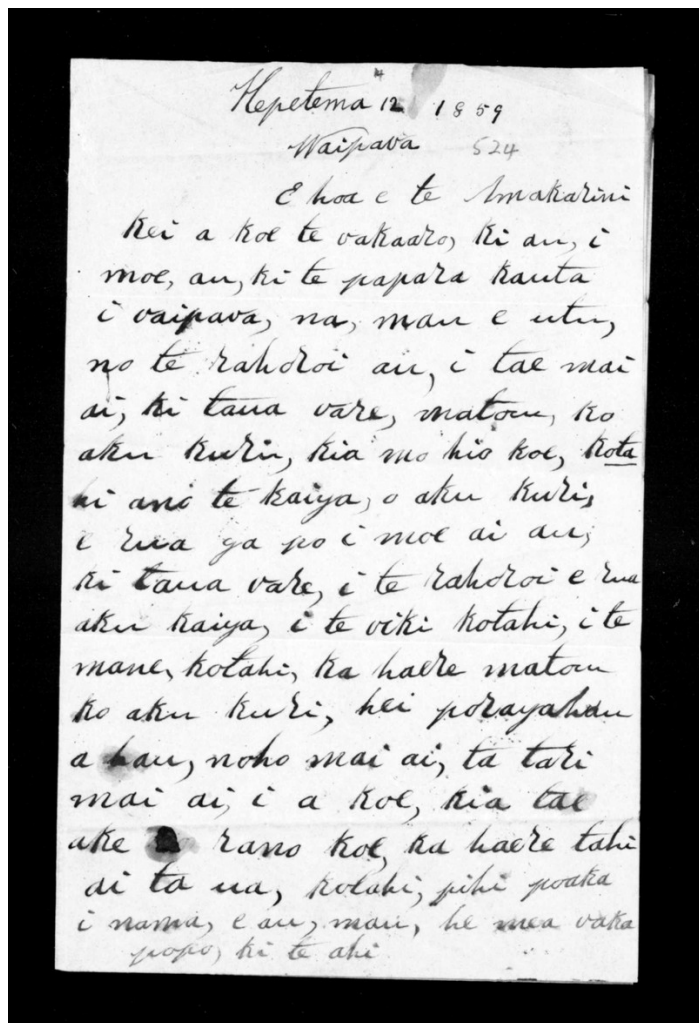 Hepetema 12 1859
Waipava 524
E hoa e te Amakarini
kei a koe te vakaaro, ki au, i
moe, au, ki te papara kauta
i vaipava, na, mau e utu,
no te rahoroi au, i tae mai
ai, ki taua vare, matou, ko
aku kuri, kia mo hio koe, kota
hi ano te kaiya, o aku kuri,
e rua ga po i moe ai au,
ki taua vare, i te rahoroi e rua
aku kaiya, i te viki kotahi, i te
mane, kotahi, ka haere matou
ko aku kuri, hei porayahau
a hau, noho mai ai, ta tari
mai ai, i a koe, kia tae
ake rano koe, ka haere tahi
ai ta ua, kotahi, pihi poaka
i nama, e au, mau, he mea vaka
popo, ki te ahi